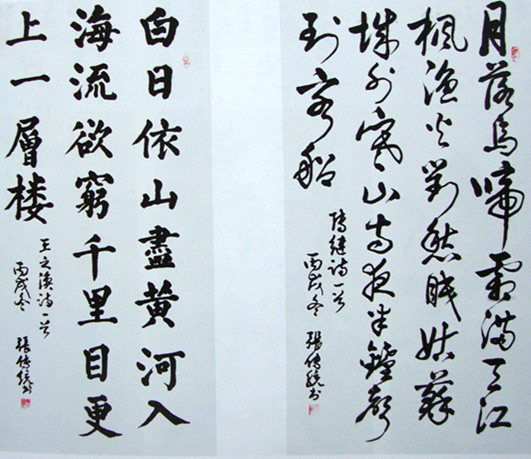 月落烏啼霜滿天江
楓漁火對愁眠姑蘇
城外寒山寺夜半鐘聲
到客船
張繼詩一首
丙戌冬 張傳統書
白日依山盡黃河入
海流欲窮千里目更
上一層楼
王之渙詩一首
丙戌冬 張傳統書